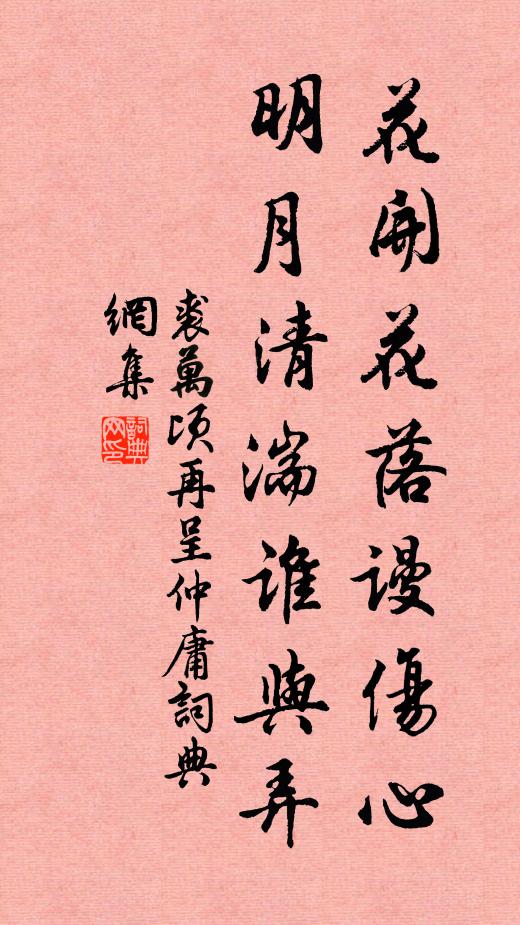 花開花落謾傷心
明月清湍誰與弄
裘萬頃再呈仲庸詞典
網集
詞典
网印